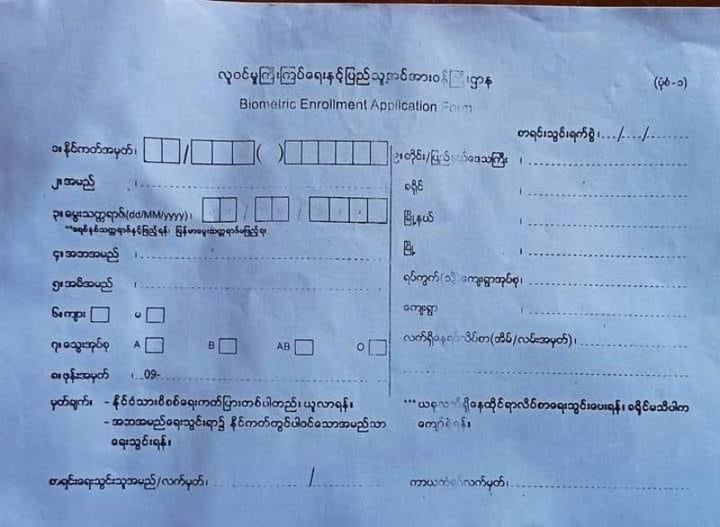 လူဝင်မှုကြီးကြပ်ရေးနှင့်ပြည်သူ့အင်အားဝန်ကြီးဌာန
(ပုံစံ-၁)
Biometric Enrollment Application Form
စာရင်းသွင်းရက်စွဲ ၊ .../.../........
၁။ နိုင်ကတ်အမှတ် ၊ / ( )
၂။ အမည် ၊
၃။ မွေးသက္ကရာဇ်(dd/MM/yyyy) ၊ / /
**ခရစ်နှစ်သက္ကရာဇ်နှင့်ဖြည့်ရန်၊ မြန်မာမွေးသက္ကရာဇ်မဖြည့်ရ။
၄။ အဘအမည် ၊
၅။ အမိအမည် ၊
၆။ ကျား မ
၇။ သွေးအုပ်စု A B AB O
၈။ ဖုန်းအမှတ် ၊ ..09-
၉။ တိုင်း/ပြည်နယ်ဒေသကြီး ၊
ခရိုင် ၊
မြို့နယ် ၊
မြို့ ၊
ရပ်ကွက်(သို့)ကျေးရွာအုပ်စု ၊
ကျေးရွာ ၊
လက်ရှိနေရပ်လိပ်စာ(အိမ်/လမ်းအမှတ်) ၊
မှတ်ချက်။ - နိုင်ငံသားစိစစ်ရေးကတ်ပြားတစ်ပါတည်း ယူလာရန်။
- အဘအမည်ရေးသွင်းရာ၌ နိုင်ကတ်တွင်ပါဝင်သောအမည်သာ
ရေးသွင်းရန်။
***ယခုလက်ရှိနေထိုင်ရာလိပ်စာရေးသွင်းပေးရန်။ ခရိုင်မသိပါက
ကျော်ခဲ့ရန်။
စာရင်းရေးသွင်းသူအမည်/လက်မှတ် ၊ /
ကာယကံရှင်လက်မှတ် ၊